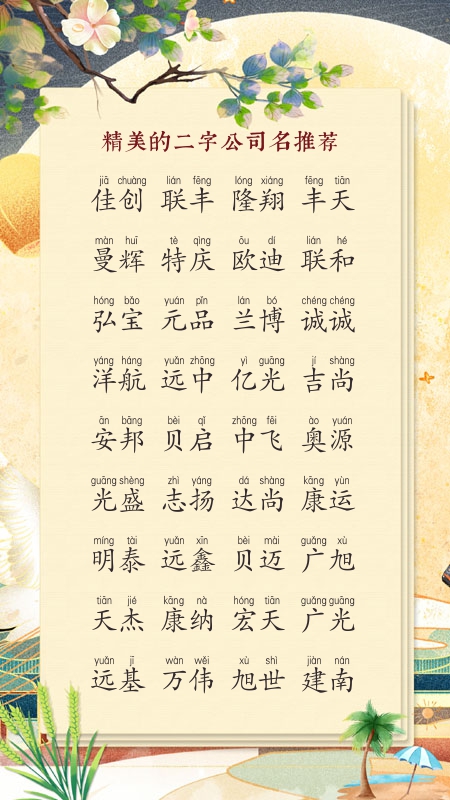 精美的二字公司名推荐
jiā chuàng lián fēng lóng xiáng fēng tiān
佳创 联丰 隆翔 丰天
màn huī tè qìng ōu dí lián hé
曼辉 特庆 欧迪 联和
hóng bǎo yuán pǐn lán bó chéng chéng
弘宝 元品 兰博 诚诚
yáng háng yuǎn zhōng yì guāng jí shàng
洋航 远中 亿光 吉尚
ān bāng bèi qǐ zhōng fēi ào yuán
安邦 贝启 中飞 奥源
guāng shèng zhì yáng dá shàng kāng yùn
光盛 志扬 达尚 康运
míng tài yuǎn xīn bèi mài guǎng xù
明泰 远鑫 贝迈 广旭
tiān jié kāng nà hóng tiān guǎng guāng
天杰 康纳 宏天 广光
yuǎn jī wàn wěi xù shì jiàn nán
远基 万伟 旭世 建南